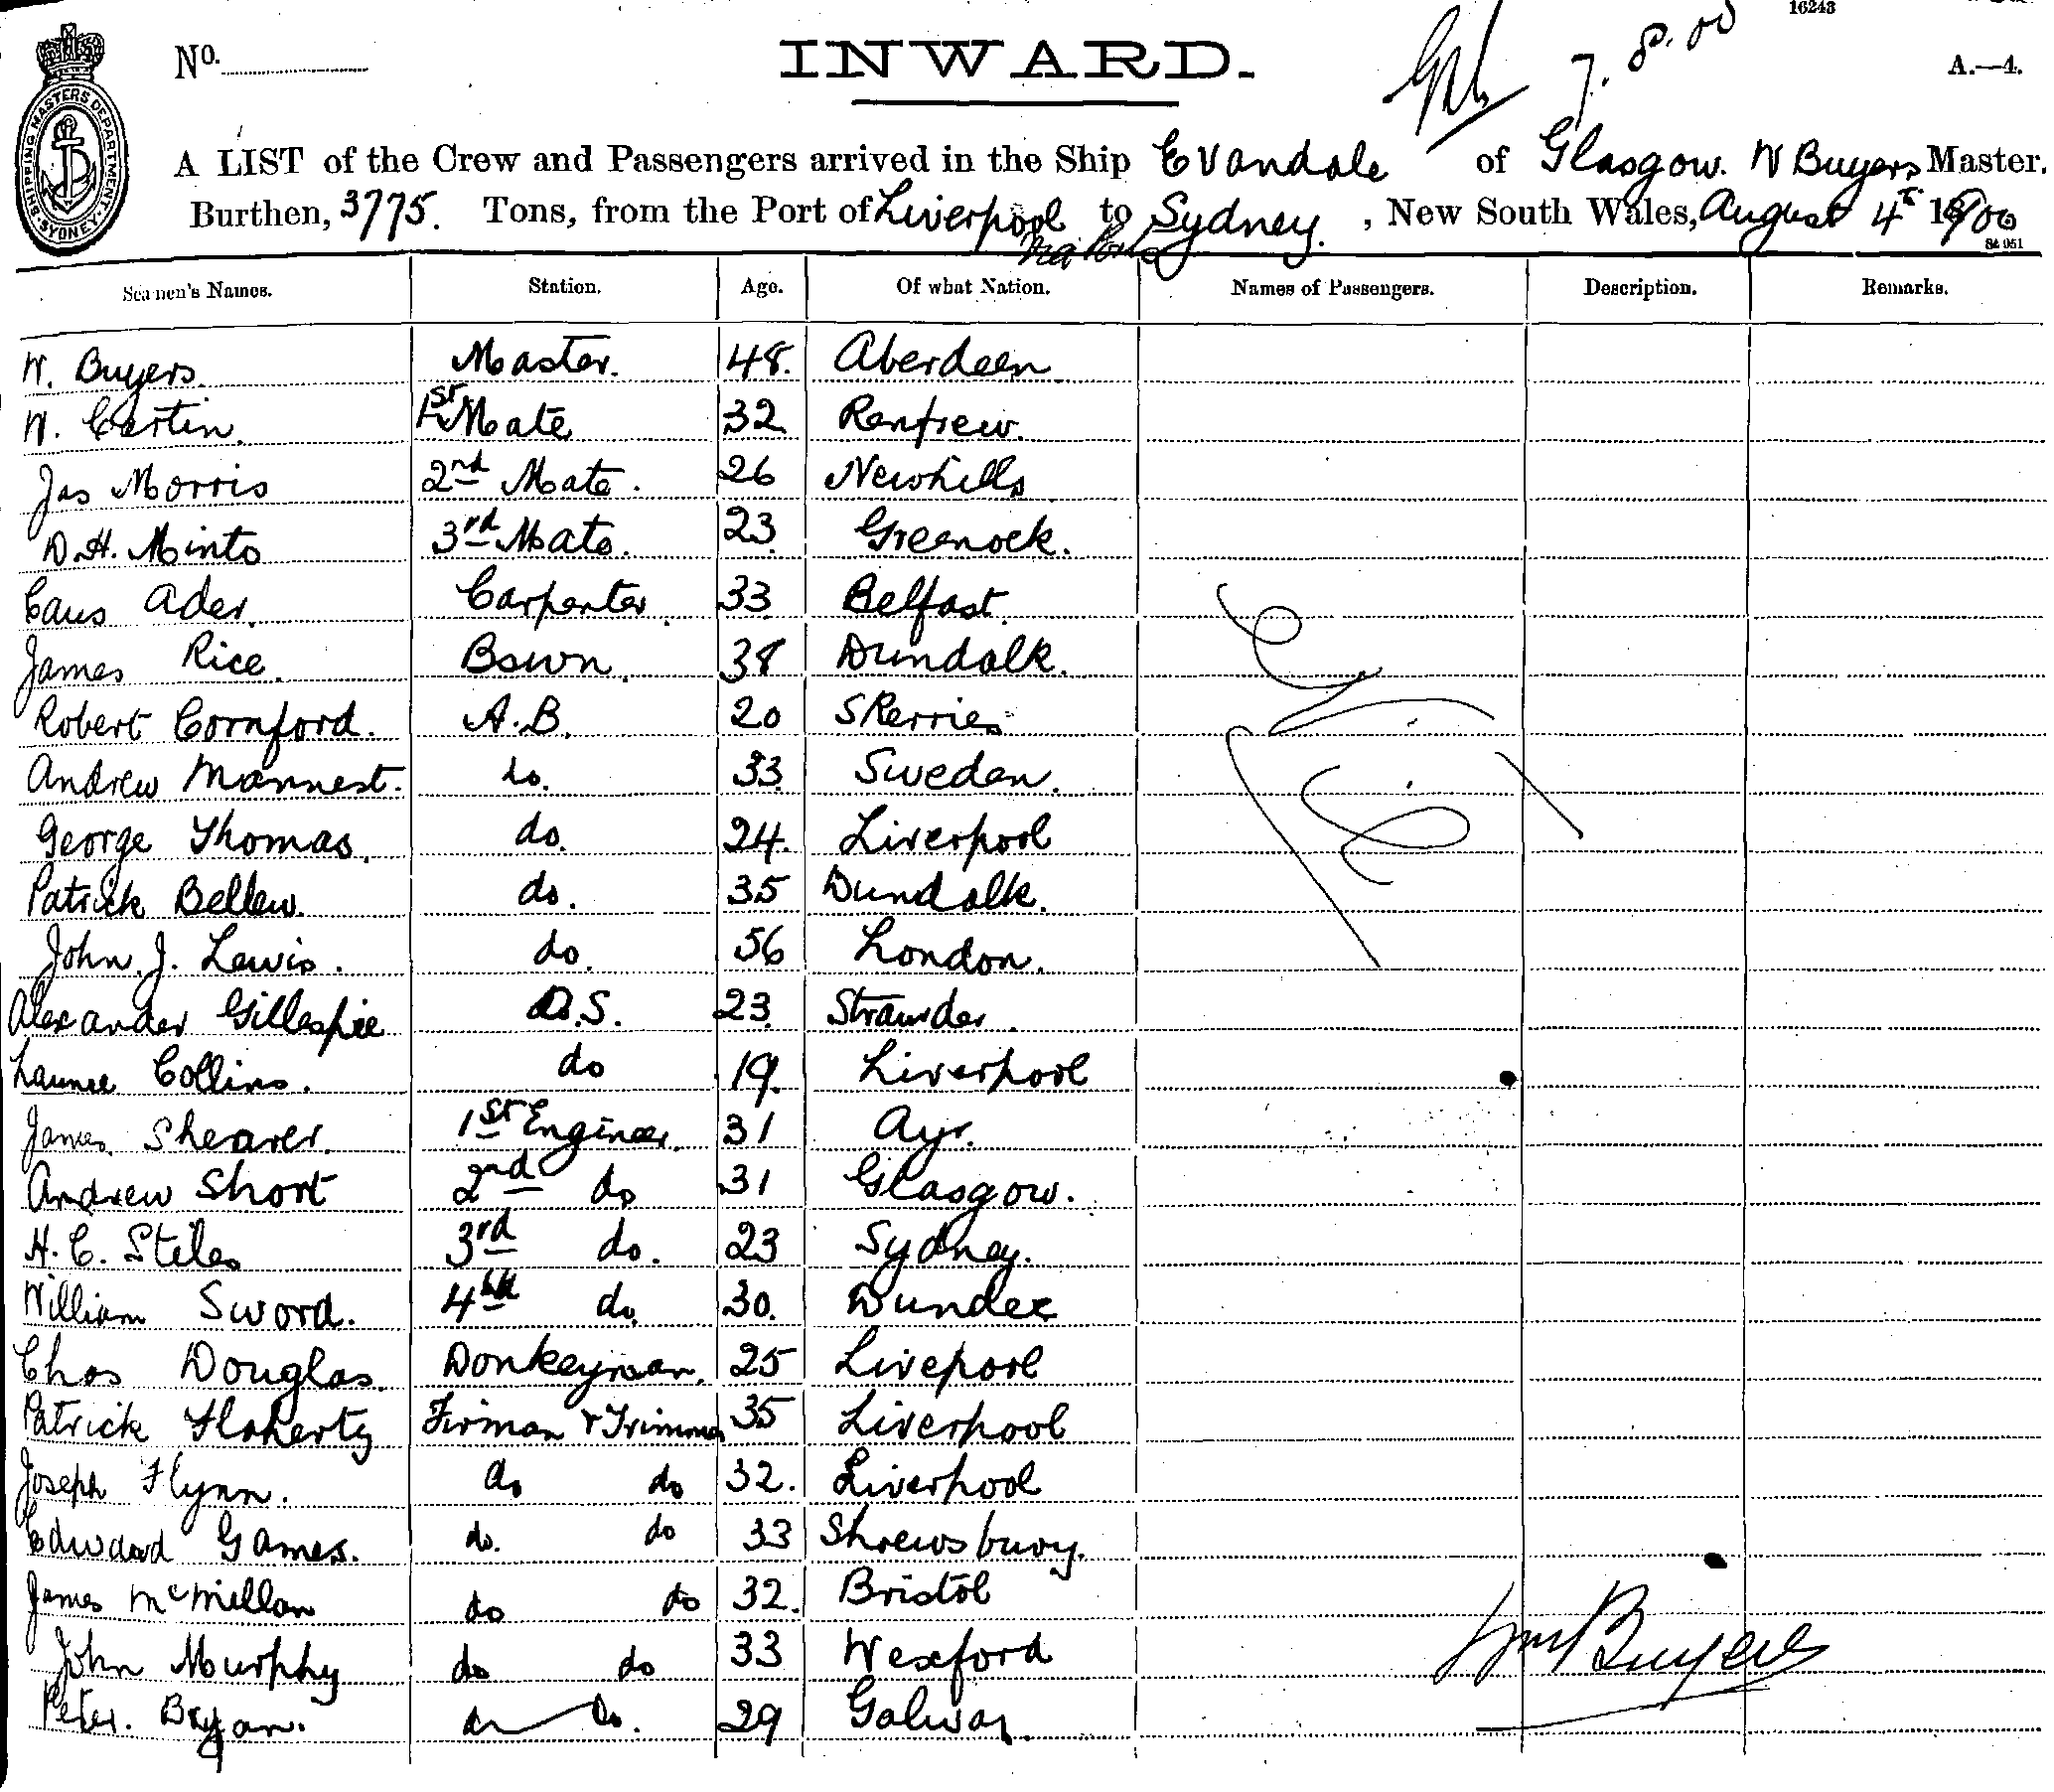 16243
No.
INWARD.
7.8.00
A.—4.
SHIPPING MASTERS DEPARTMENT. SYDNEY.
A LIST of the Crew and Passengers arrived in the Ship Evandale of Glasgow. W Buyers Master.
Burthen, 3775. Tons, from the Port of Liverpool to Sydney. , New South Wales, August 4th 1900
via Ports
Seamen's Names. Station. Age. Of what Nation. Names of Passengers. Description. Remarks.
W. Buyers. Master. 48. Aberdeen
W. Cartin. 1st Mate 32 Renfrew.
Jas Morris 2nd Mate. 26 Newhills
D.H. Minto 3rd Mate. 23 Greenock.
Ader. Carpenter. 33 Belfast.
James Rice. Bswn. 38 Dundalk.
Robert Cornford. A.B. 20 Skerries
Andrew Mannest. do. 33 Sweden.
George Thomas. do. 24. Liverpool
Patrick Bellew. do. 35 Dundalk.
John. J. Lewis. do. 56 London.
Alexander Gillespie O.S. 23 
Collins. do 19. Liverpool
James Shearer. 1st Engineer. 31 Ayr.
Andrew Short 2nd do 31 Glasgow.
H. C. Stiles 3rd do. 23 Sydney.
William Sword. 4th do. 30. Dundee
Chas Douglas. Donkeyman. 25 Livepool
Patrick Flaherty Firman & Trimmer 35 Liverpool
Joseph Flynn. do do 32. Liverpool
Edward Games. do. do 33 Shrewsbury.
James McMillan do do 32. Bristol
John Murphy do do 33 Wexford
Peter. Bryan. do do. 29 Galway
Wm Buyers